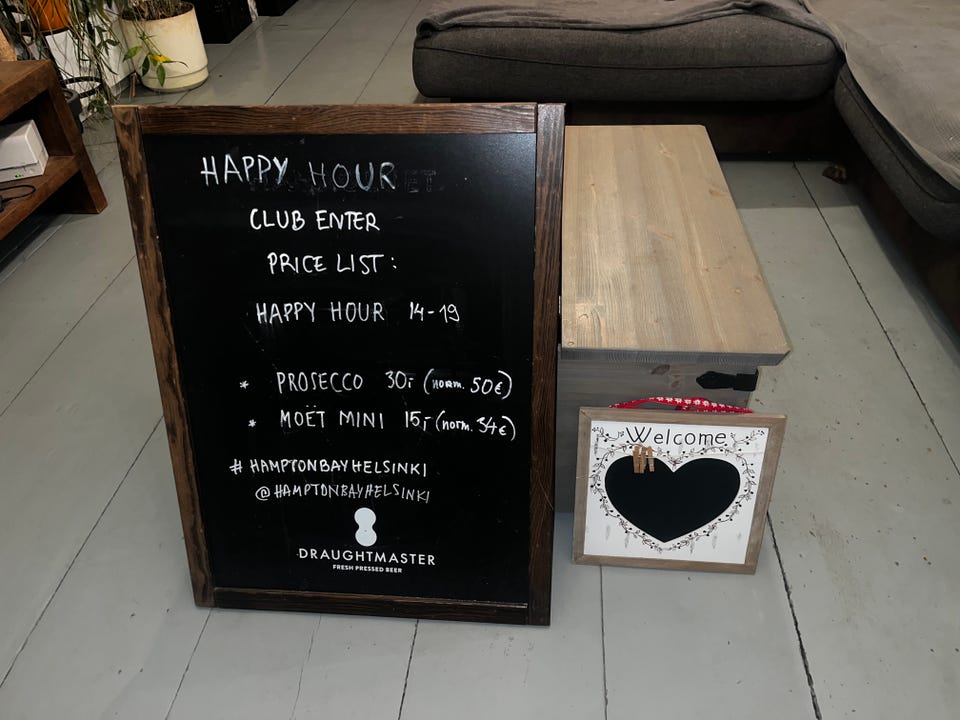 HAPPY HOUR
CLUB ENTER
PRICE LIST:
HAPPY HOUR 14-19
* PROSECCO 30,- (norm. 50€)
* MOËT MINI 15,- (norm. 34€)
#HAMPTONBAYHELSINKI
@HAMPTONBAYHELSINKI
DRAUGHTMASTER
FRESH PRESSED BEER
Welcome